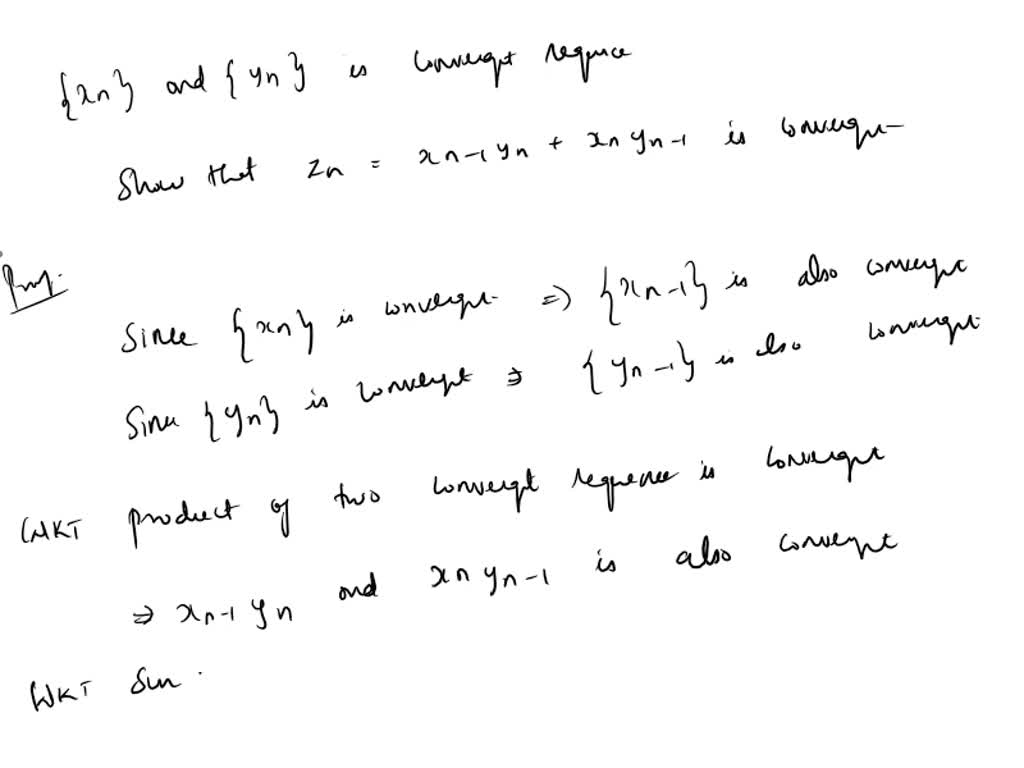 {xn} and {yn} is convergt sequence
Show that zn = xn-1 yn + xn yn-1 is convergt
Proof:
Since {xn} is convergt ⇒ {xn-1} is also convergt
Since {yn} is convergt ⇒ {yn-1} is also convergt
WKT product of two convergt sequence is convergt
⇒ xn-1 yn and xn yn-1 is also convergt
WKT Sum